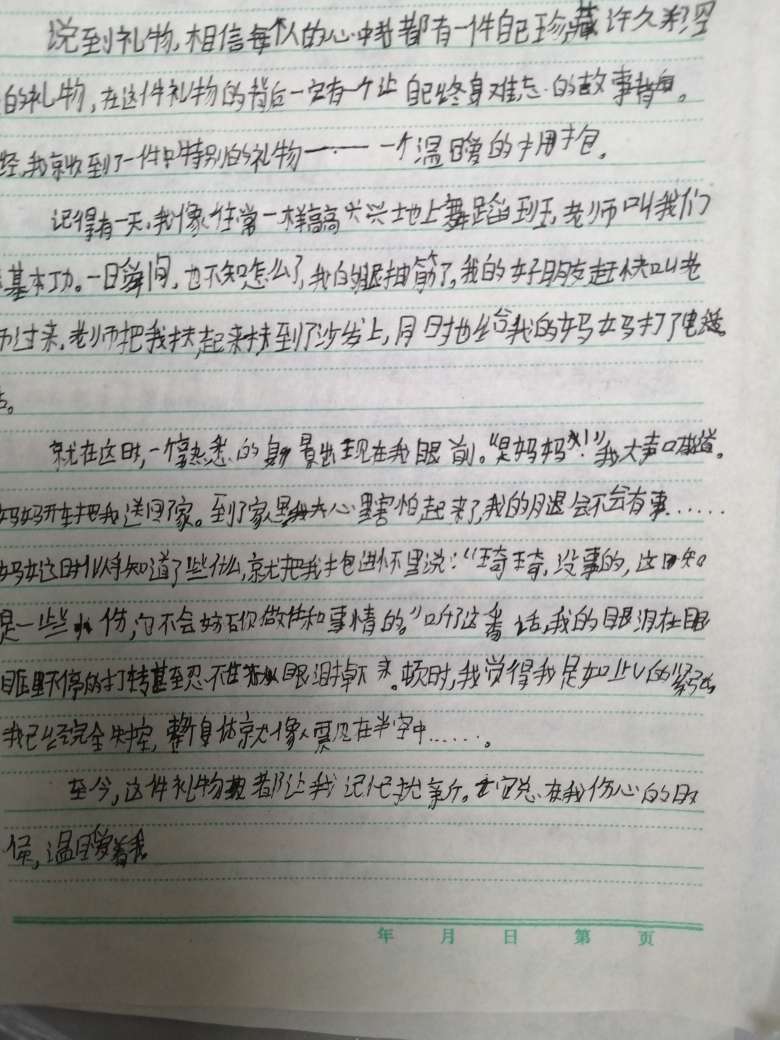 说到礼物,相信每个人的心中都有一件自己珍藏许久
的礼物,在这件礼物的背后一定有一个让自己终身难忘的故事。
我就收到了一件特别的礼物——一个温暖的拥抱。
记得有一天,我像往常一样高高兴兴地上舞蹈班,老师叫我们
基本功。一瞬间,也不知怎么了,我的腿抽筋了,我的好朋友赶快叫老
过来,老师把我扶起来扶到了沙发上,同时也给我的妈妈打了电话
就在这时,一个熟悉的身影出现在我眼前。“是妈妈!”我大声喊道。
妈妈开车把我送回了家。到了家里我心里害怕起来了,我的腿会不会有事……
这时知道了些什么,就把我抱进怀里说:“琦琦,没事的,这
是一些小伤,它不会妨碍你做任何事情的。”听了这番话,我的眼泪在眼
眶里不停的打转甚至忍不住眼泪掉下来。顿时,我觉得我是如此的
我已经完全失控,整个身体就像飘在半空中……。
至今,这件礼物都让我记忆犹新。它总在我伤心的时
候,温暖着我
年 月 日 第 页